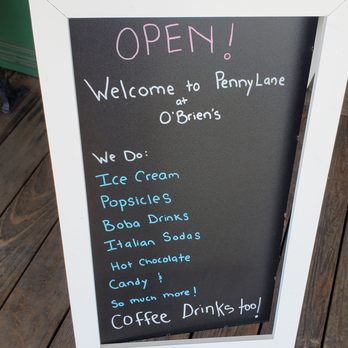 OPEN!
Welcome to PennyLane
at
O'Brien's
We Do:
Ice Cream
Popsicles
Boba Drinks
Italian Sodas
Hot Chocolate
Candy &
So much more!
Coffee Drinks too!